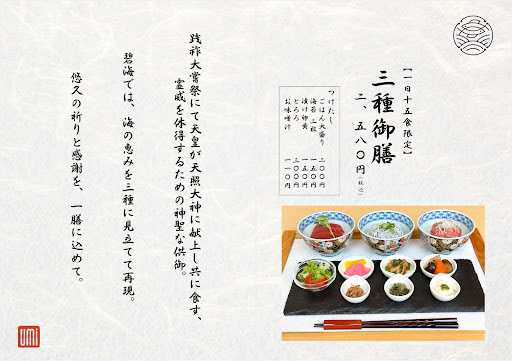 【一日十五食限定】
三種御膳
二、五八〇円(税込)
つけたし
ごはん大盛り 二〇〇円
海苔二枚 一五〇円
漬け卵黄 一五〇円
とろろ 二〇〇円
お味噌汁 一一〇円
践祚大嘗祭にて天皇が天照大神に献上し共に食す、
霊威を体得するための神聖な供御。
碧海では、海の恵みを三種に見立てて再現。
悠久の祈りと感謝を、一膳に込めて。
umi